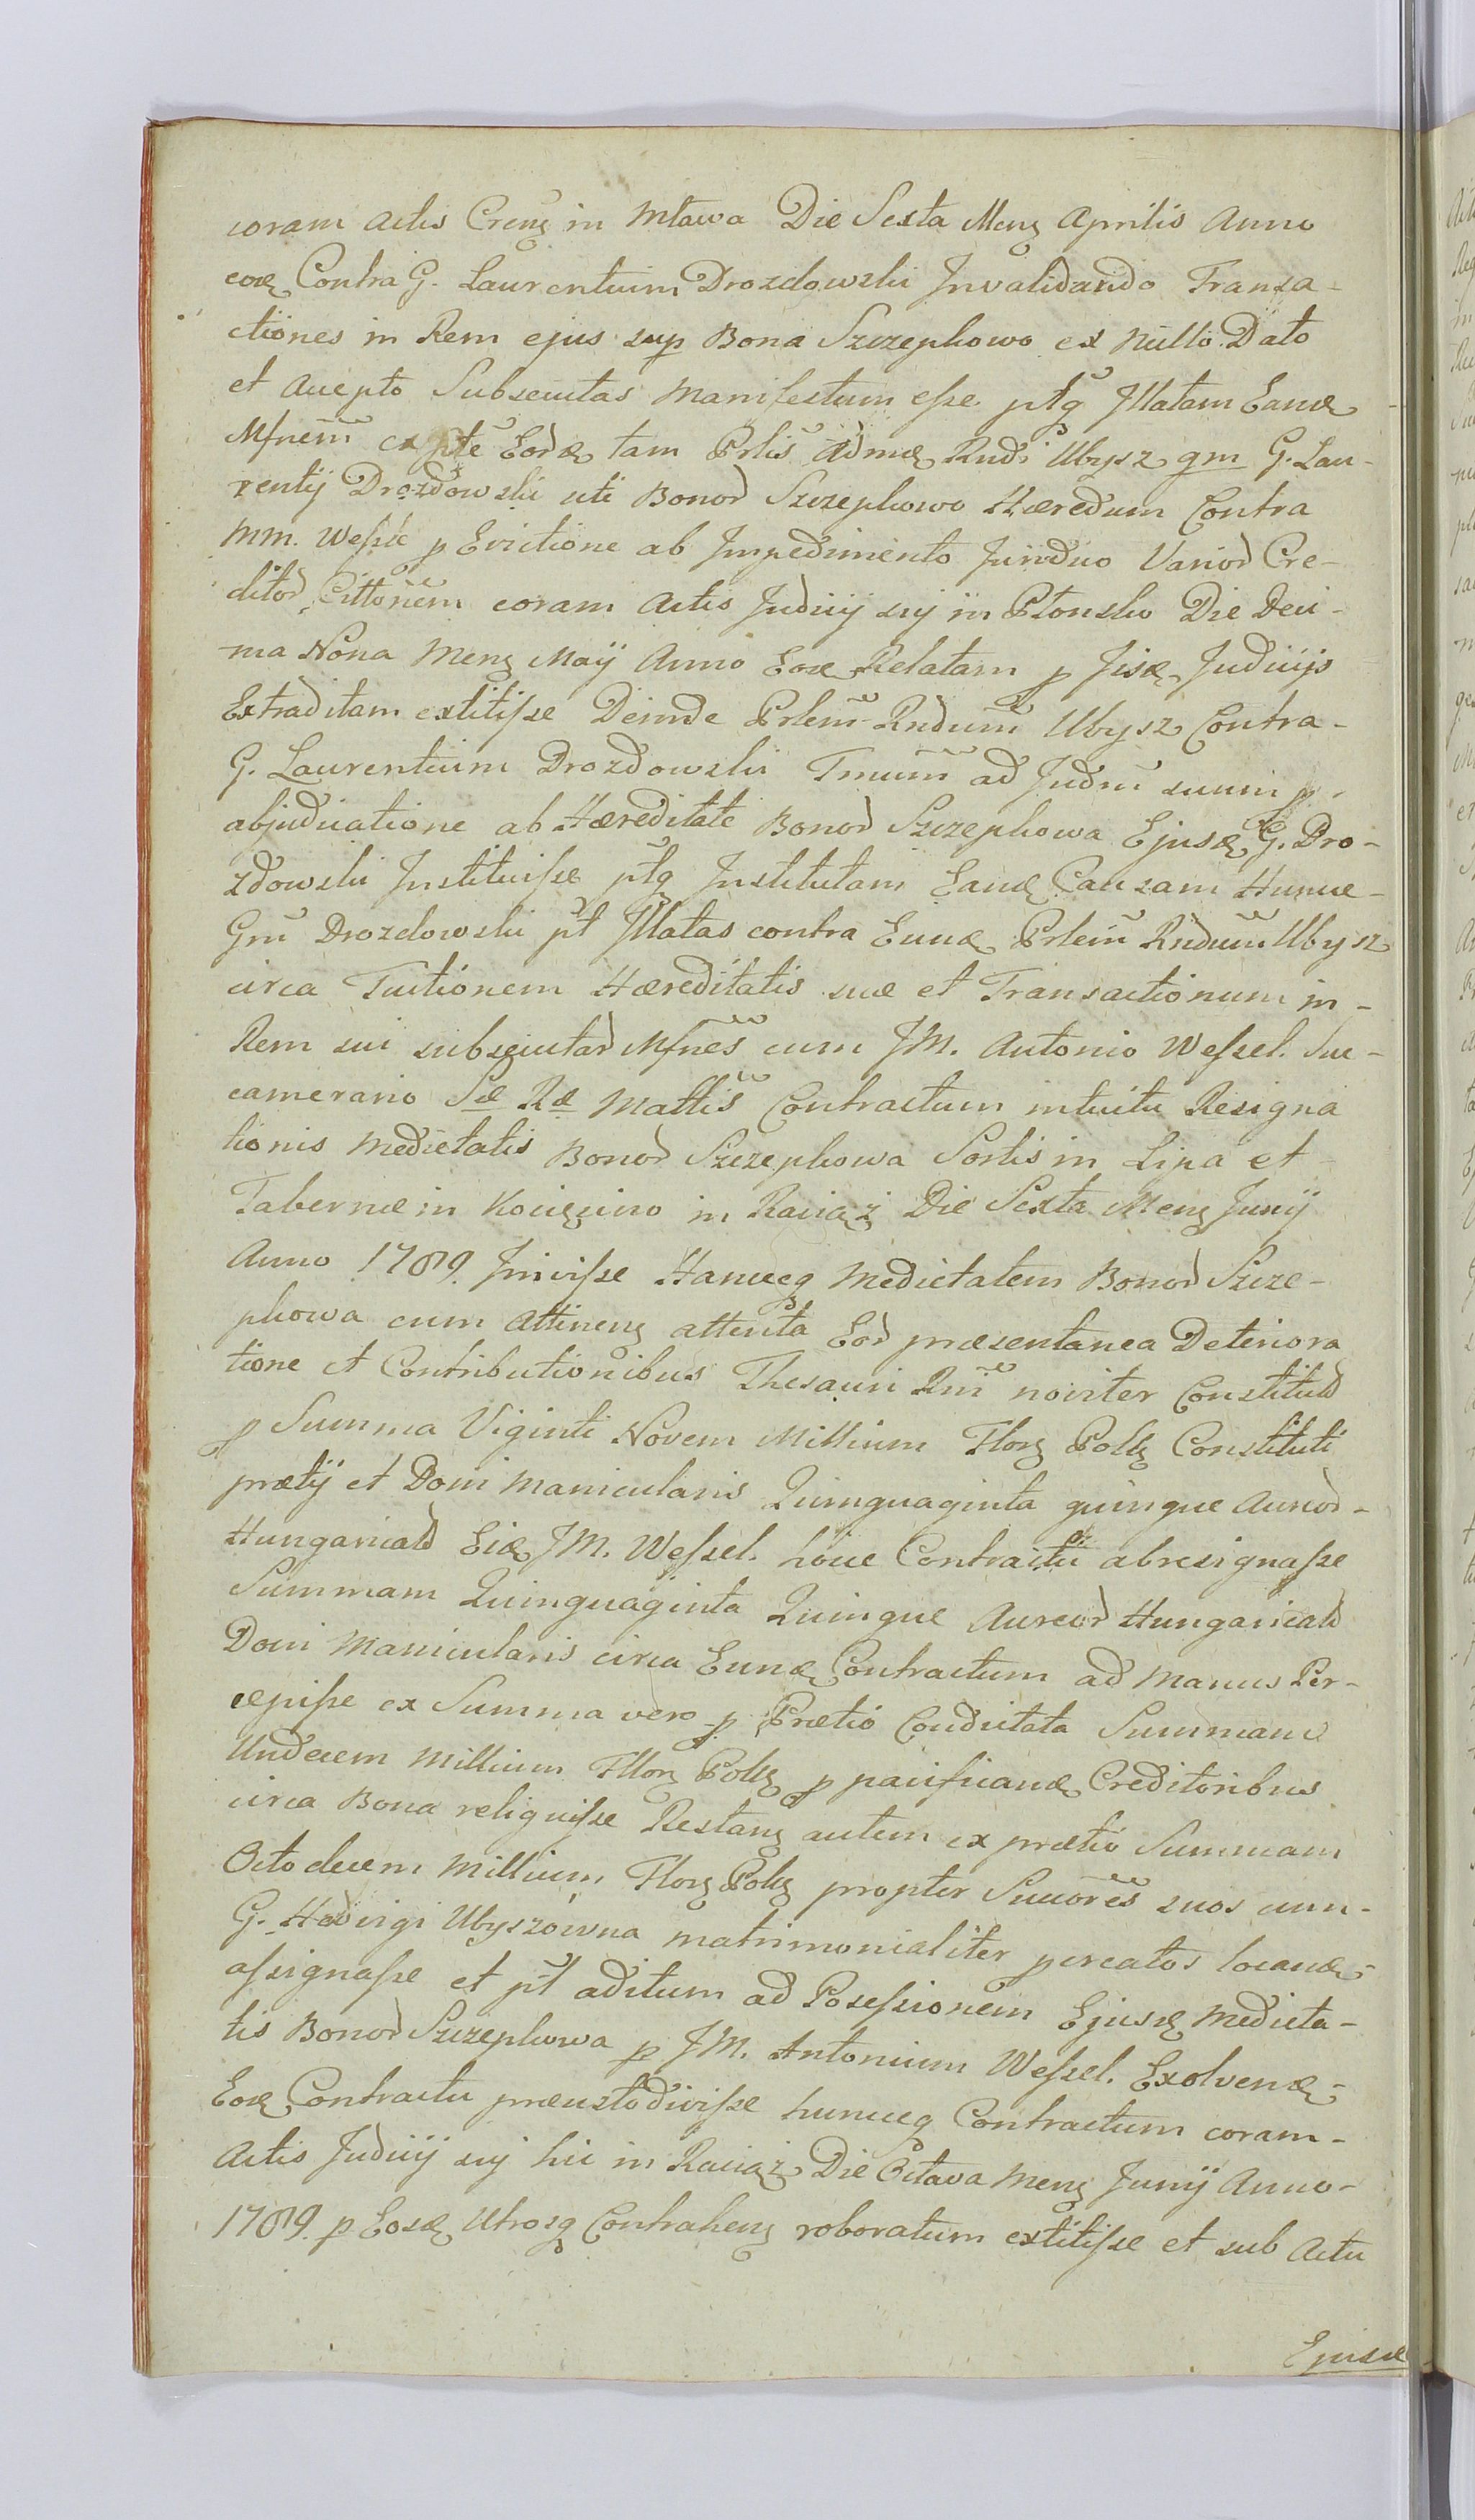 coram Actis Crens in Mława Die Sexta Mens Aprilis Anno
eoq Contra G. Laurentium Drozdowski Invalidando Transa-
ctiones in Rem ejus sup Bona Szczepkowo ex Nullo Dato
et Accepto Subsecutas Manifestum esse ptq Illatam Eand
Mfnem ex pte Eord tam Prlis Admd Rndi Ubysz qm G. Lau-
rentij Drozdowski uti Bonor Szczepkowo Hæredum Contra
MM. Wessle p Evictione ab Impedimento Juriduo Varior Cre-
ditor Cittonem coram Actis Judicij sij in Płonsko Die Deci-
ma Nona Mens Maij Anno Eoq Relatam p Jisd Judicijs
Extraditam extitisse Deinde Prlem Rndum Ubysz Contra-
G. Laurentium Drozdowski Tnum ad Judm suum p
abjudicatione ab Hæreditate Bonor Szczepkowa Ejusd G. Dro-
zdowski Instituisse ptq Institutam Eand Causam Hunce-
Gm Drozdowski pt Illatas contra Eund Prlem Rndum Ubysz
circa Tuitionem Hæreditatis suæ et Transactionum in-
Rem sui subsecutar Mfnes cum JM. Antonio Wessel. Suc-
camerario Sæ Ræ Mattis Contractum intuitu Resigna
tionis Medietatis Bonor Szczepkowa Sortis in Lipa et
Tabernæ in Kocięcino in Raciąż Die Sexta Mens Junij
Anno 1789. Inivisse Hanceq Medietatem Bonor Szcze-
pkowa cum Attinens attenta Eor præsentanea Deteriora
tione et Contributionibus Thesauri Rni noviter Constitutd
p Summa Viginti Novem Millium Flor Polls Constituti
prætij et Doni Manicularis Quinquaginta quinque Aureor-
Hungaricald Eid JM. Wessel. hoice Contractu abresignasse
Summam Quinquaginta Quinque Aureor Hungaricald
Doni Manicularis circa Eund Contractum ad Manus Per-
cepisse ex Summa vero p Prætio Condictata Summam
Undecem Millium Fllor Polls p pacificand Creditoribus
circa Bona reliquisse Restans autem ex prætio Summam
Octodecem Millium Flor Polls propter Succores suos cum-
G. Hedvigi Ubyszowna matrimonialiter pcreatos locand-
assignasse et pt aditum ad Posessionem Ejusd Medieta-
tis Bonor Szczepkowa p JM. Antonium Wessel. Exolvend-
Eoq Contractu præcustodivisse hunceq Contractum coram-
Actis Judicij sij hic in Raciąż Die Octava Mens Junij Anno-
1789. p Eosd Utrosq Contrahens roboratum extitisse et sub Actu
Ejusd